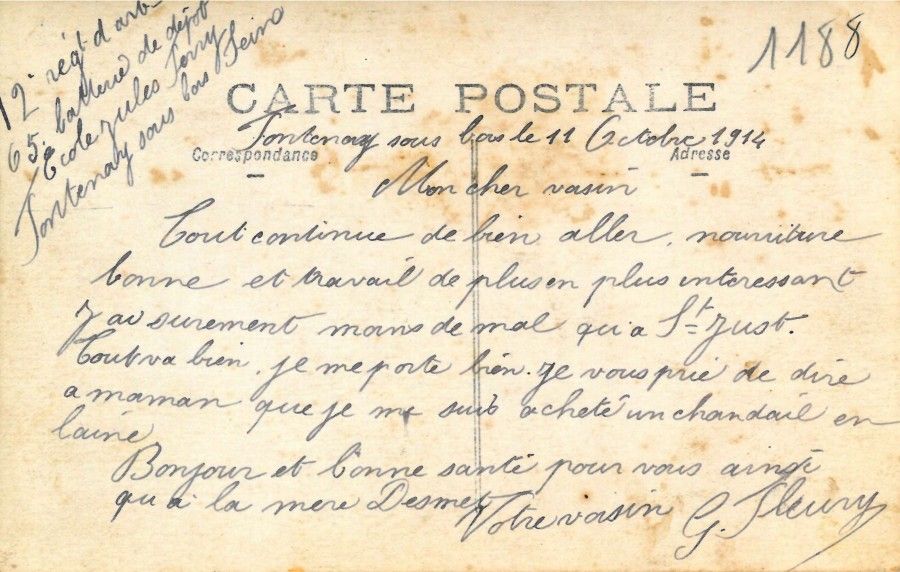 12e régt d'art
65e batterie de dépot
Ecole Jules Ferry
Fontenay sous bois Seine
1188
CARTE POSTALE
Fontenay sous bois le 11 Octobre 1914
Correspondance
Adresse
Mon cher vasin
Tout continue de bien aller, nourriture
bonne et travail de plus en plus interessant
J'ai surement moins de mal qu'a St Just.
Tout va bien, je me porte bien. Je vous prie de dire
a maman que je me suis acheté un chandail en
laine
Bonjour et bonne santé pour vous ainsi
qu'à la mere Desmet
Votre vasin G. Fleury